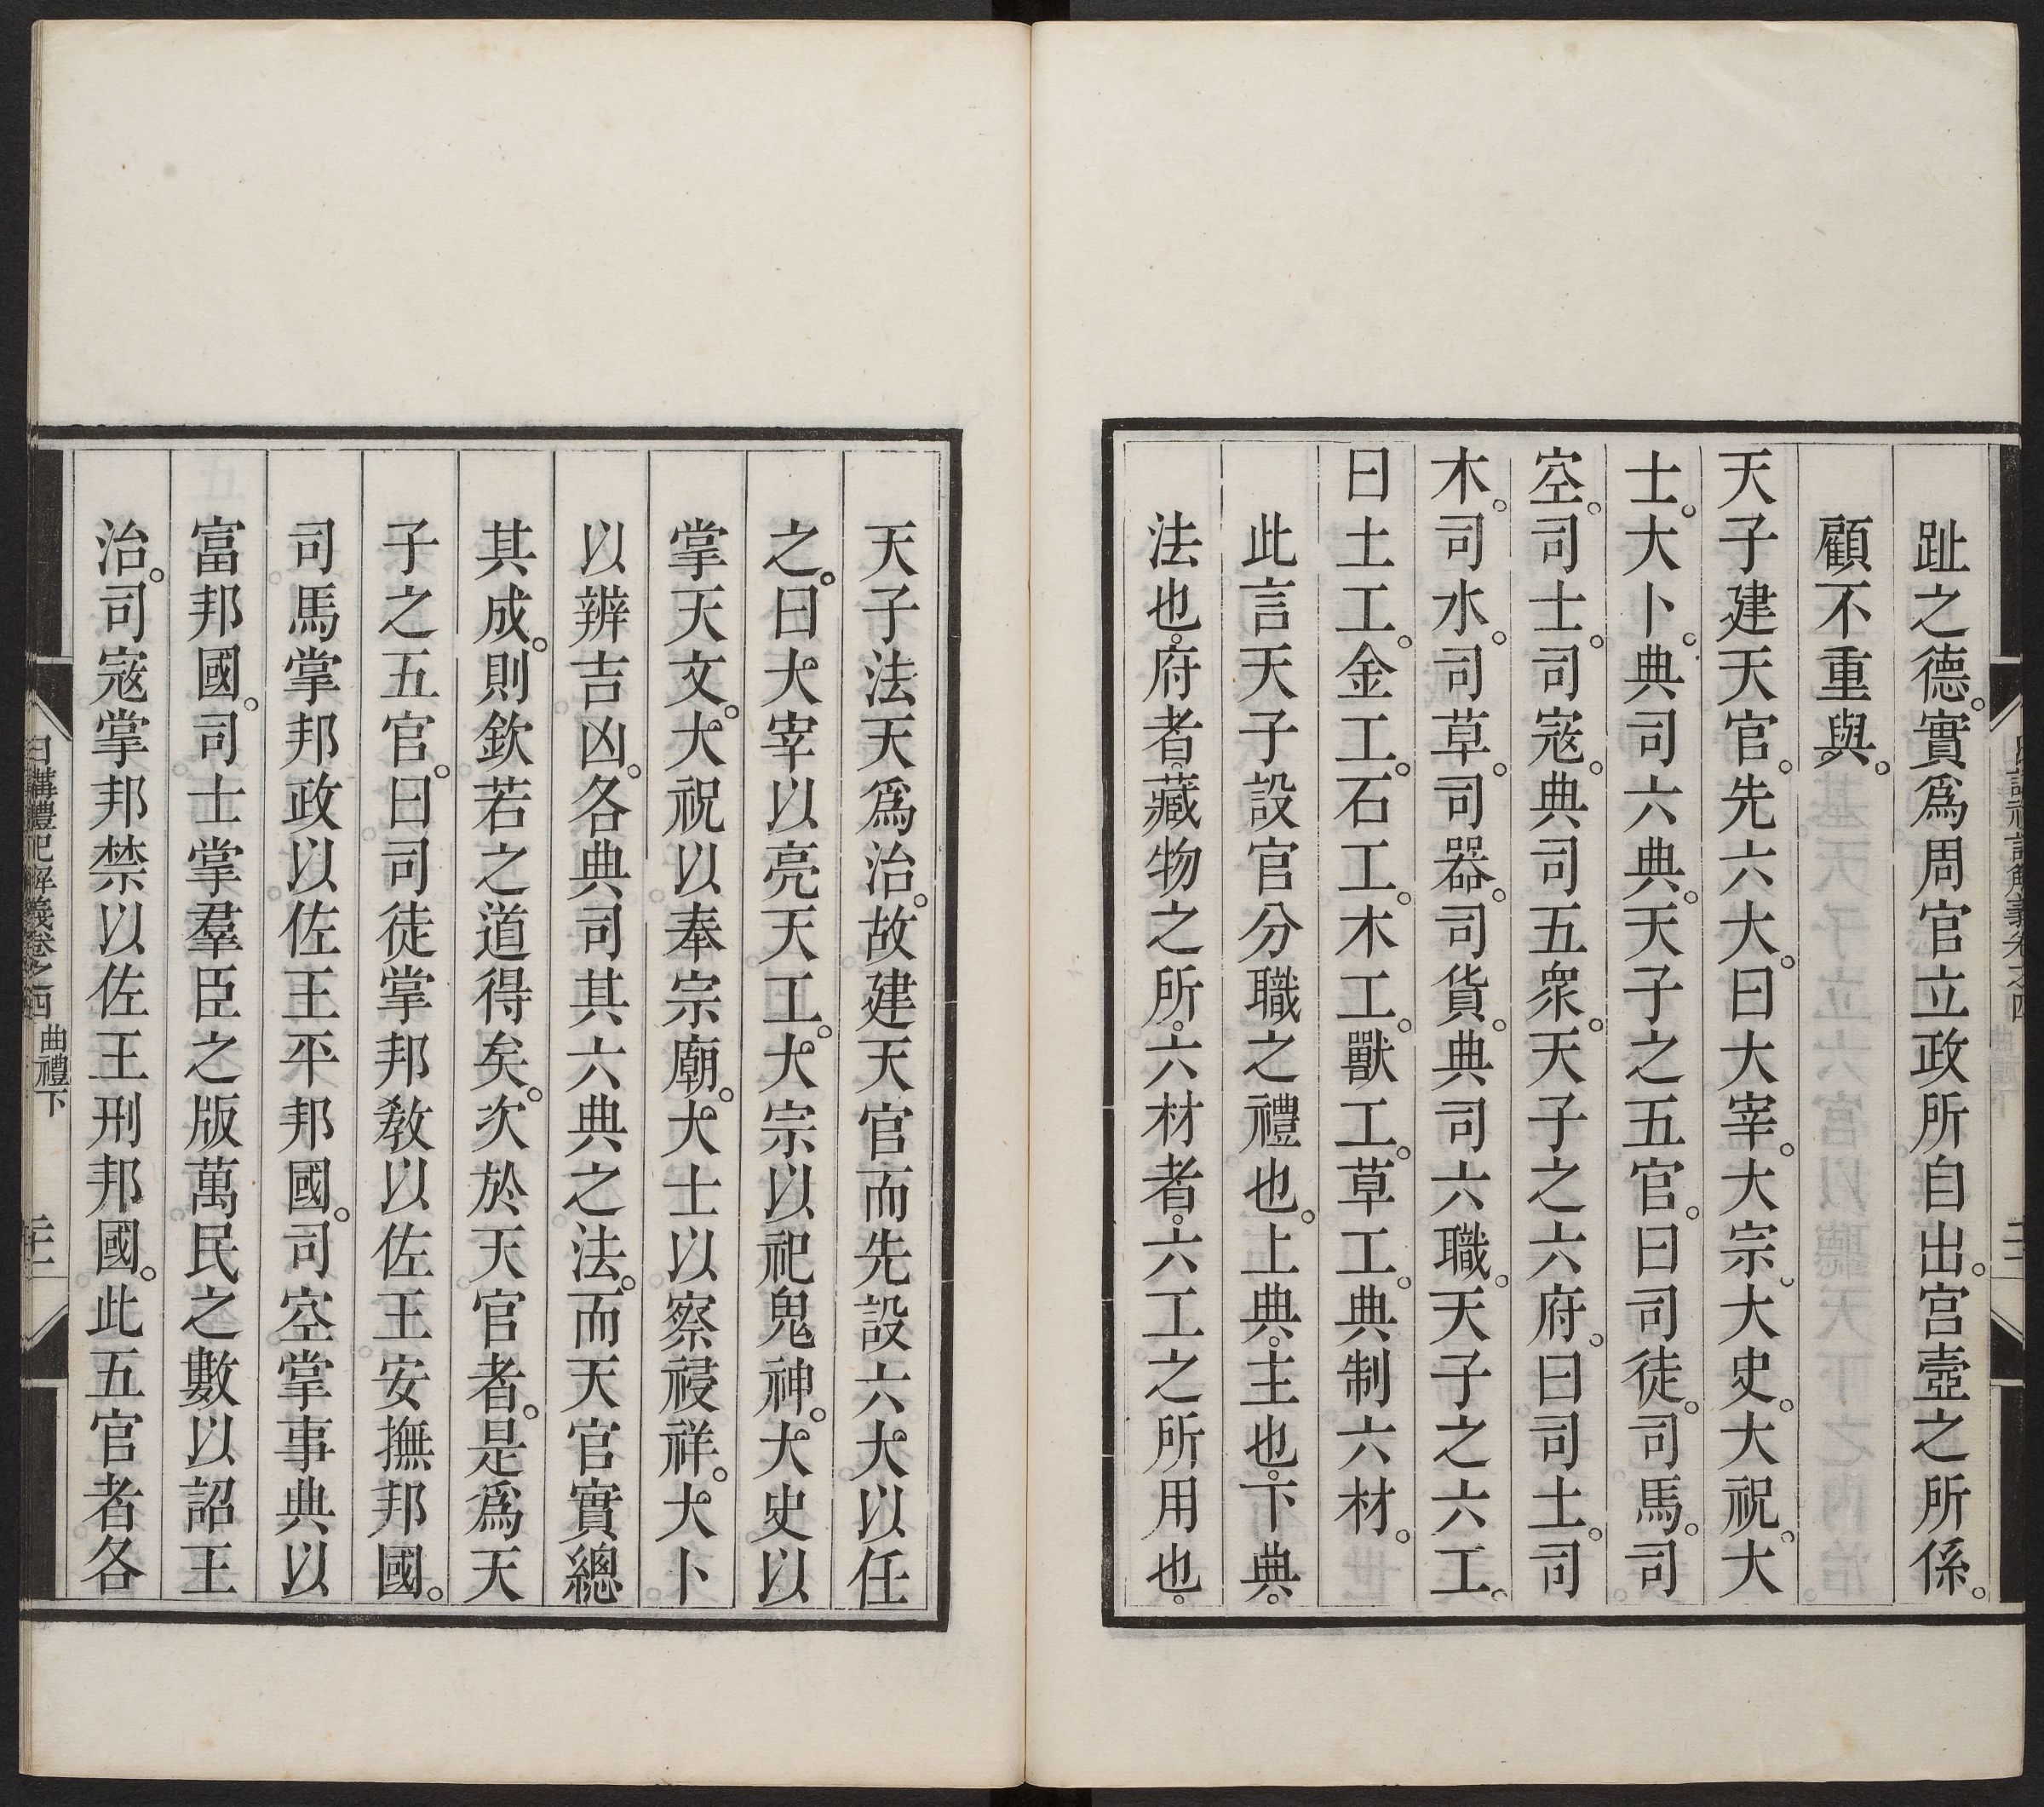 趾之德。實爲周官立政所自出。宫壼之所係。
顧不重與。
天子建天官。先六大。曰大宰。大宗。大史。大祝。大
士。大卜。典司六典。天子之五官。曰司徒。司馬。司
空。司士。司宼。典司五衆。天子之六府。曰司土。司
木。司水。司草。司器。司貨。典司六職。天子之六工。
曰土工。金工。石工。木工。獸工。草工。典制六材。
此言天子設官分職之禮也。上典。主也。下典。
法也。府者。藏物之所。六材者。六工之所用也。
天子法天爲治。故建天官而先設六大。以任
之。曰大宰以亮天工。大宗以祀鬼神。大史以
掌天文。大祝以奉宗廟。大士以察祲祥。大卜
以辨吉凶。各典司其六典之法。而天官實總
其成。則欽若之道得矣。次於天官者。是爲天
子之五官。曰司徒掌邦教以佐王安撫邦國。
司馬掌邦政以佐王平邦國。司空掌事典以
富邦國。司士掌羣臣之版萬民之數以詔王
治。司宼掌邦禁以佐王刑邦國。此五官者各
日講禮記解義卷之四 曲禮下